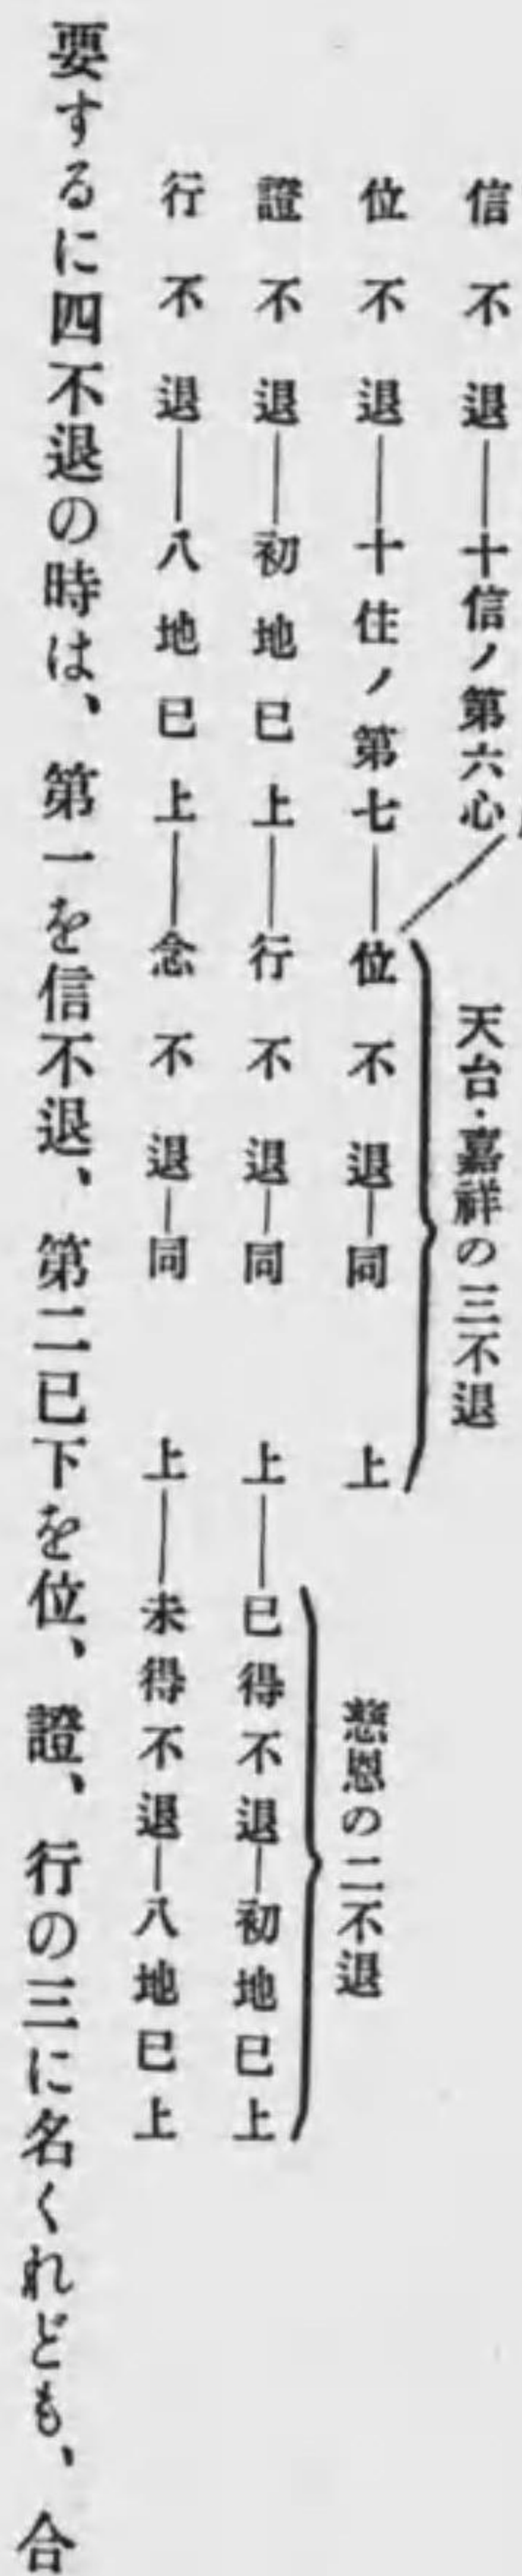 信不退――十信ノ第六心
天台・嘉祥の三不退
位不退――十住ノ第七――位不退―同上
慈恩の二不退
證不退――初地已上――行不退―同上――已得不退―初地已上
行不退――八地已上――念不退―同上――未得不退―八地已上
要するに四不退の時は、第一を信不退、第二已下を位、證、行の三に名くれども、合